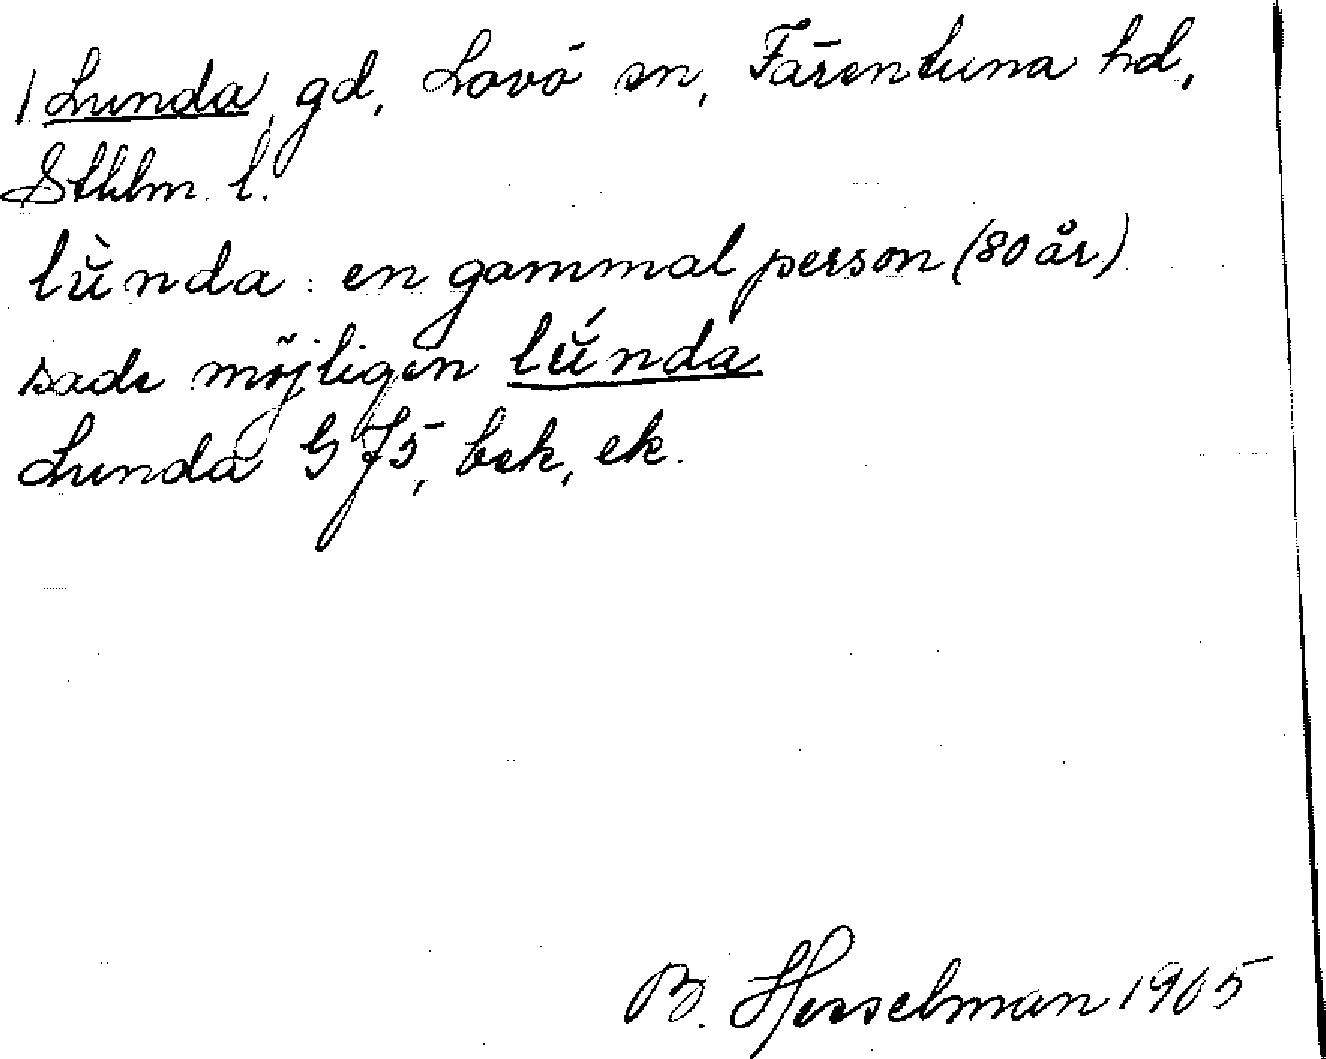 1 Lunda, gd, Lovö sn, Färentuna hd,
Sthlm. l.
lŭ̀nda: en gammal person (80 år)
sade möjligen lŭ́nda
Lunda G J5, bek, ek.
B. Hesselman 1905